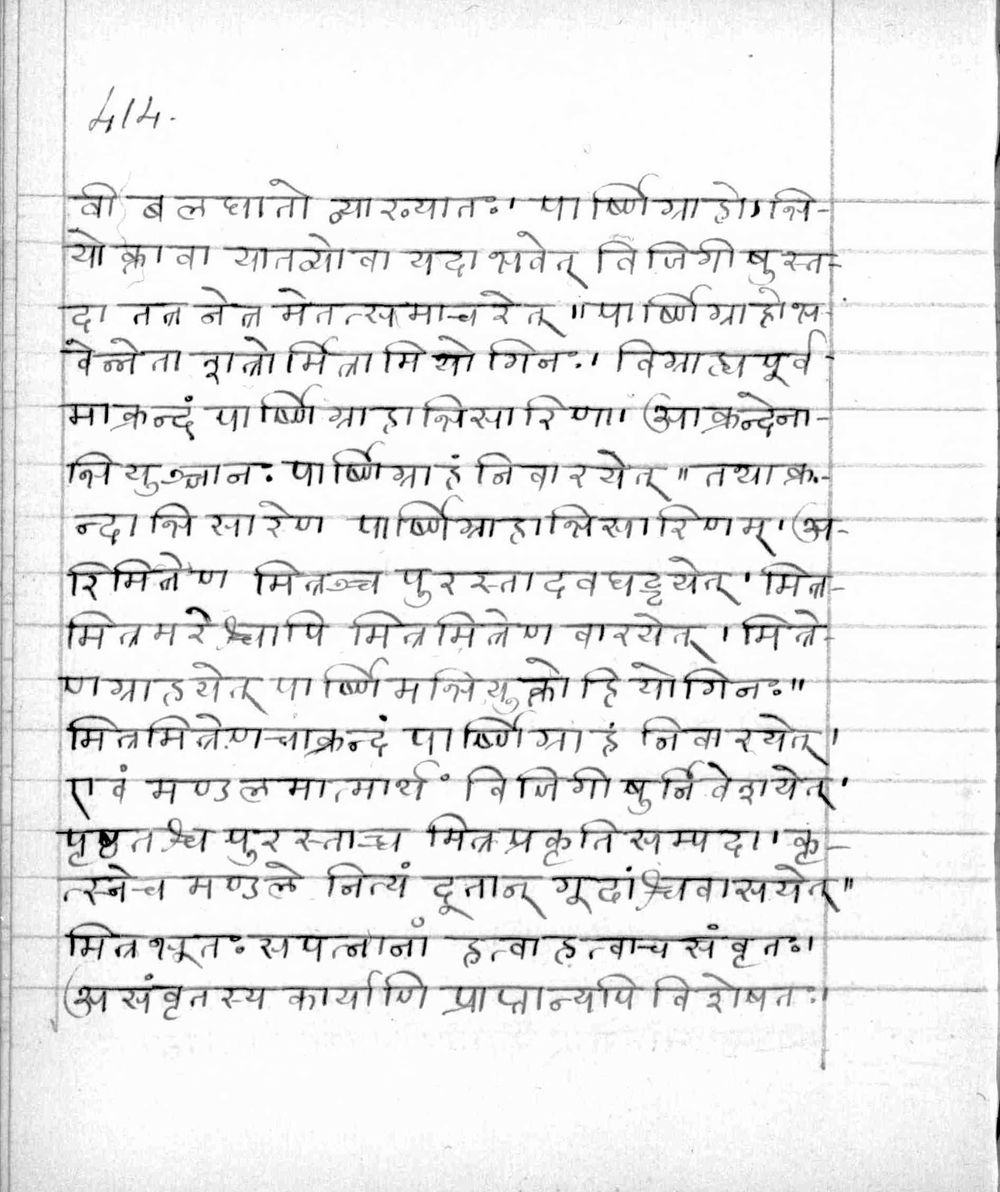 414.
वी बलघातो व्याख्यातः। पार्ष्णिग्राहोऽभि-
योक्ता वा यातव्यो वा यदा भवेत् विजिगीषुस्त-
दा तत्र नेत्रमेतत्समाचरेत्॥ पार्ष्णिग्राहो भ-
वेन्नेता शत्रोर्मित्राभियोगिनः। विग्राह्य पूर्व-
माक्रन्दं पार्ष्णिग्राहाभिसारिणा। आक्रन्देना-
भियुञ्जानः पार्ष्णिग्राहं निवारयेत्॥ तथाक्र-
न्दाभिसारेण पार्ष्णिग्राहाभिसारिणम्। अ-
रिमित्रेण मित्रञ्च पुरस्तादवघट्टयेत्। मित्र-
मित्रमरेश्चापि मित्रमित्रेण वारयेत्। मित्रे-
णग्राहयेत् पार्ष्णिमभियुक्तो हि योगिनः॥
मित्रमित्रेणचाक्रन्दं पार्ष्णिग्राहं निवारयेत्।
एवं मण्डलमात्मार्थं विजिगीषुर्निवेशयेत्।
पृष्ठतश्च पुरस्ताच्च मित्रप्रकृतिसम्पदा। कृ-
त्स्नेच मण्डले नित्यं दूतान् गूढांश्चवासयेत्॥
मित्रभूतः सपत्नानां हत्वाहत्वाच संवृतः।
असंवृतस्य कार्याणि प्राप्तान्यपि विशेषतः।